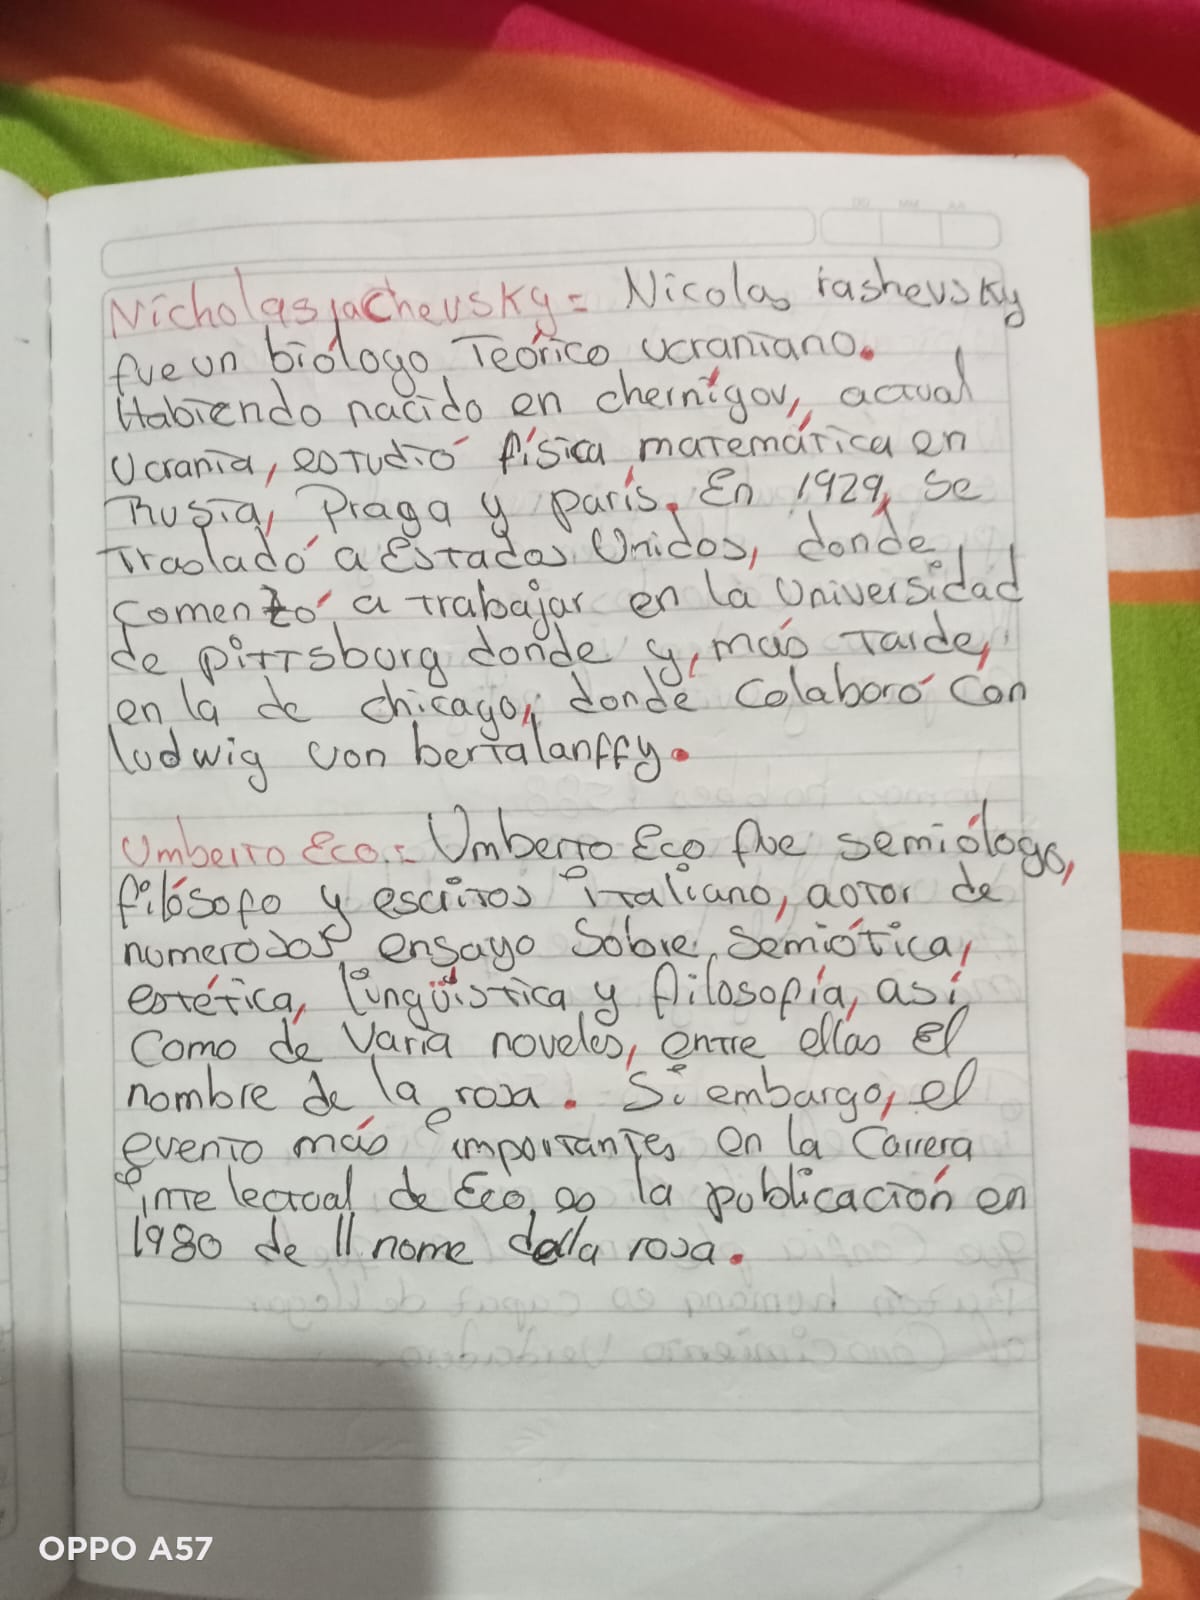 DD MM AA
Nicholas rachevsky = Nicolas rashevsky
fue un biólogo Teórico ucraniano.
Habiendo nacido en chernígov, actual
Ucrania, estudió física matemática en
Rusia, Praga y parís. En 1929, se
Trasladó a Estados Unidos, donde
comenzó a trabajar en la Universidad
de pittsburg donde y, más Tarde,
en la de chicago, donde colaboró con
ludwig von bertalanffy.
Umberto Eco = Umberto Eco fue semiólogo,
filósofo y escritos italiano, autor de
numerosos ensayo sobre semiótica,
estética, lingüística y filosofía, así
como de varia noveles, entre ellas el
nombre de la rosa. Si embargo, el
evento más importantes en la carrera
intelectual de Eco es la publicación en
1980 de Il nome della rosa.
OPPO A57